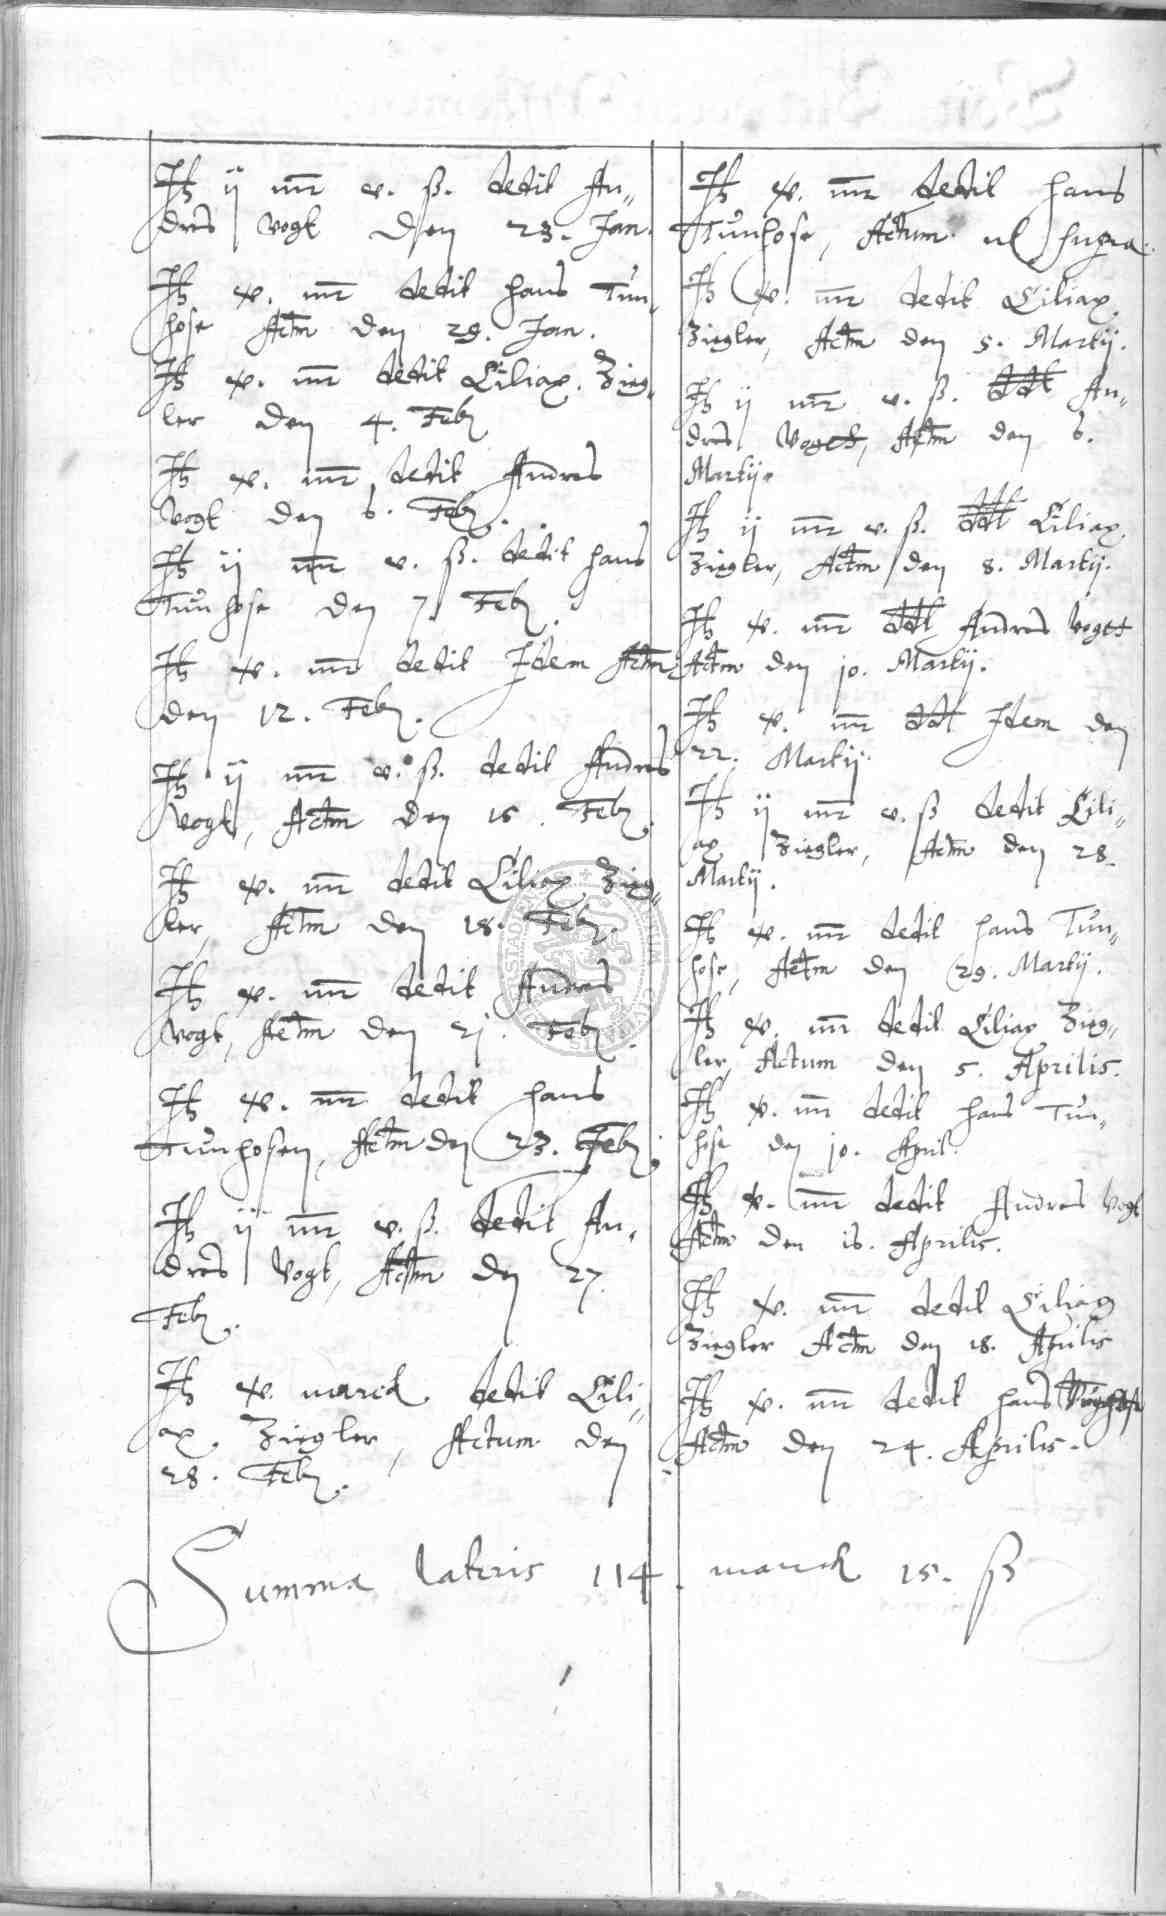 It ij mr v. ß. dedit An„
dres Vogt den 23. Jan.
It v. mr dedit Hans Tún„
hose Actm den 29. Jan.
It v. mr dedit Ciliax. Zieg„
ler den 4. Feb
It v. mr dedit Andres
Vogt den 6. Feb.
It ij mr v. ß. dedit Hans
Túnhose den 7 Feb.
It v. mr dedit Idem Actm
den 12. Feb.
It ij mr v. ß. dedit Andres
Vogt, Actm den 15. Feb.
It v. mr dedit Ciliax Zieg„
ler, Actm den 18. Feb.
It v. mr dedit Andres
Vogt, Actm den 21. Feb.
It v. mr dedit Hans
Túnhosen, Actm den 23. Feb.
It ij mr v. ß. dedit An„
dres Vogt, Actm den 27
Feb.
It v. marck dedit Cili„
ax. Ziegler, Actum den
28. Feb.
It v. mr dedit Hans
Túnhose, Actum ut supra.
It v. mr dedit Ciliax.
Ziegler, Actm den 5. Martij.
It ij mr v. ß. ddt An„
dres Vogtt, Actm den 6.
Martij.
It ij mr v. ß. ddt Ciliax.
Ziegler, Actm den 8. Martij.
It v. mr ddt Andres Vogtt
Actm den 10. Martij.
It v. mr ddt Idem den
22. Martij.
It ij mr v. ß dedit Cili„
ax Ziegler, Actm den 28
Martij.
It v. mr dedit Hans Tún„
hose, Actm den 29. Martij.
It v. mr dedit Ciliax Zieg„
ler, Actum den 5. Aprilis.
It v. mr dedit Hans Tún„
hose den 10. April.
It v. mr dedit Andres Vogt
Actm den 16. Aprilis.
It v. mr dedit Ciliax
Ziegler Actm den 18. Aprilis
It v. mr dedit Hans
Actm den 24. Aprilis.
Summa lateris 114. marck 15. ß